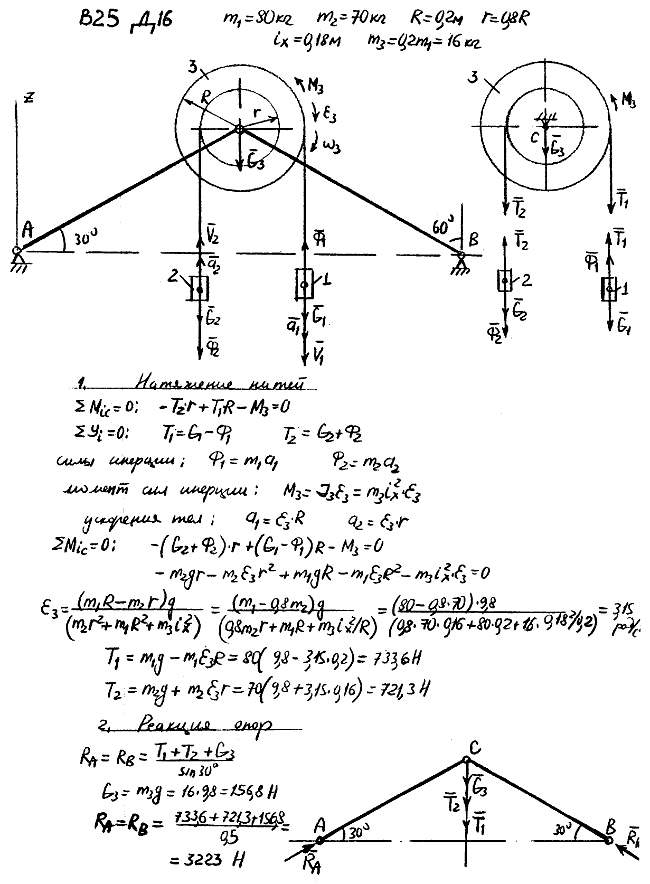 В25 Д,16 m₁=80кг m₂=70кг R=0,2м r=0,8R
iₓ=0,18м m₃=0,2m₁=16кг
3
R
r
M₃
ε₃
ω₃
G̅₃
z
A
30°
60°
B
V̅₂
a̅₂
2
G̅₂
Φ̅₂
Φ̅₁
1
G̅₁
a̅₁
V̅₁
3
M₃
C
G̅₃
T̅₂
T̅₁
T̅₂
2
G̅₂
Φ̅₂
T̅₁
Φ̅₁
1
G̅₁
1. Натяжение нитей
ΣMic=0; -T₂·r+T₁R-M₃=0
ΣYi=0; T₁=G₁-Φ₁ T₂=G₂+Φ₂
силы инерции; Φ₁=m₁a₁ Φ₂=m₂a₂
момент сил инерции; M₃=J₃ε₃=m₃iₓ²·ε₃
ускорения тел; a₁=ε₃·R a₂=ε₃·r
ΣMic=0; -(G₂+Φ₂)·r+(G₁-Φ₁)R-M₃=0
-m₂gr-m₂ε₃r²+m₁gR-m₁ε₃R²-m₃iₓ²·ε₃=0
ε₃=(m₁R-m₂r)g/(m₂r²+m₁R²+m₃iₓ²)=(m₁-0,8m₂)g/(0,8m₂r+m₁R+m₃iₓ²/R)=(80-0,8·70)·9,8/(0,8·70·0,16+80·0,2+16·0,18²/0,2)=3,15 рад/с²
T₁=m₁g-m₁ε₃R=80(9,8-3,15·0,2)=733,6Н
T₂=m₂g+m₂ε₃r=70(9,8+3,15·0,16)=721,3Н
2. Реакция опор
R_A=R_B=(T₁+T₂+G₃)/sin30°
G₃=m₃g=16·9,8=156,8 Н
R_A=R_B=(733,6+721,3+156,8)/0,5=
=3223 Н
C
G̅₃
T̅₂
T̅₁
A
30°
R̅_A
30°
B
R̅_B